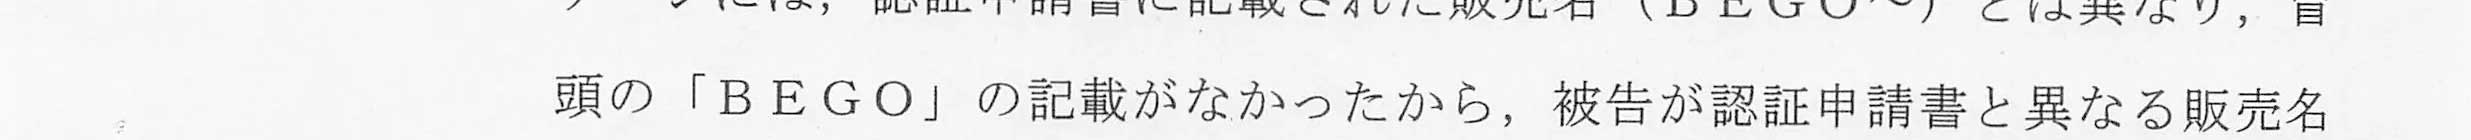 には，認証申請書に記載された販売名（ＢＥＧＯ～）とは異なり，冒
頭の「ＢＥＧＯ」の記載がなかったから，被告が認証申請書と異なる販売名